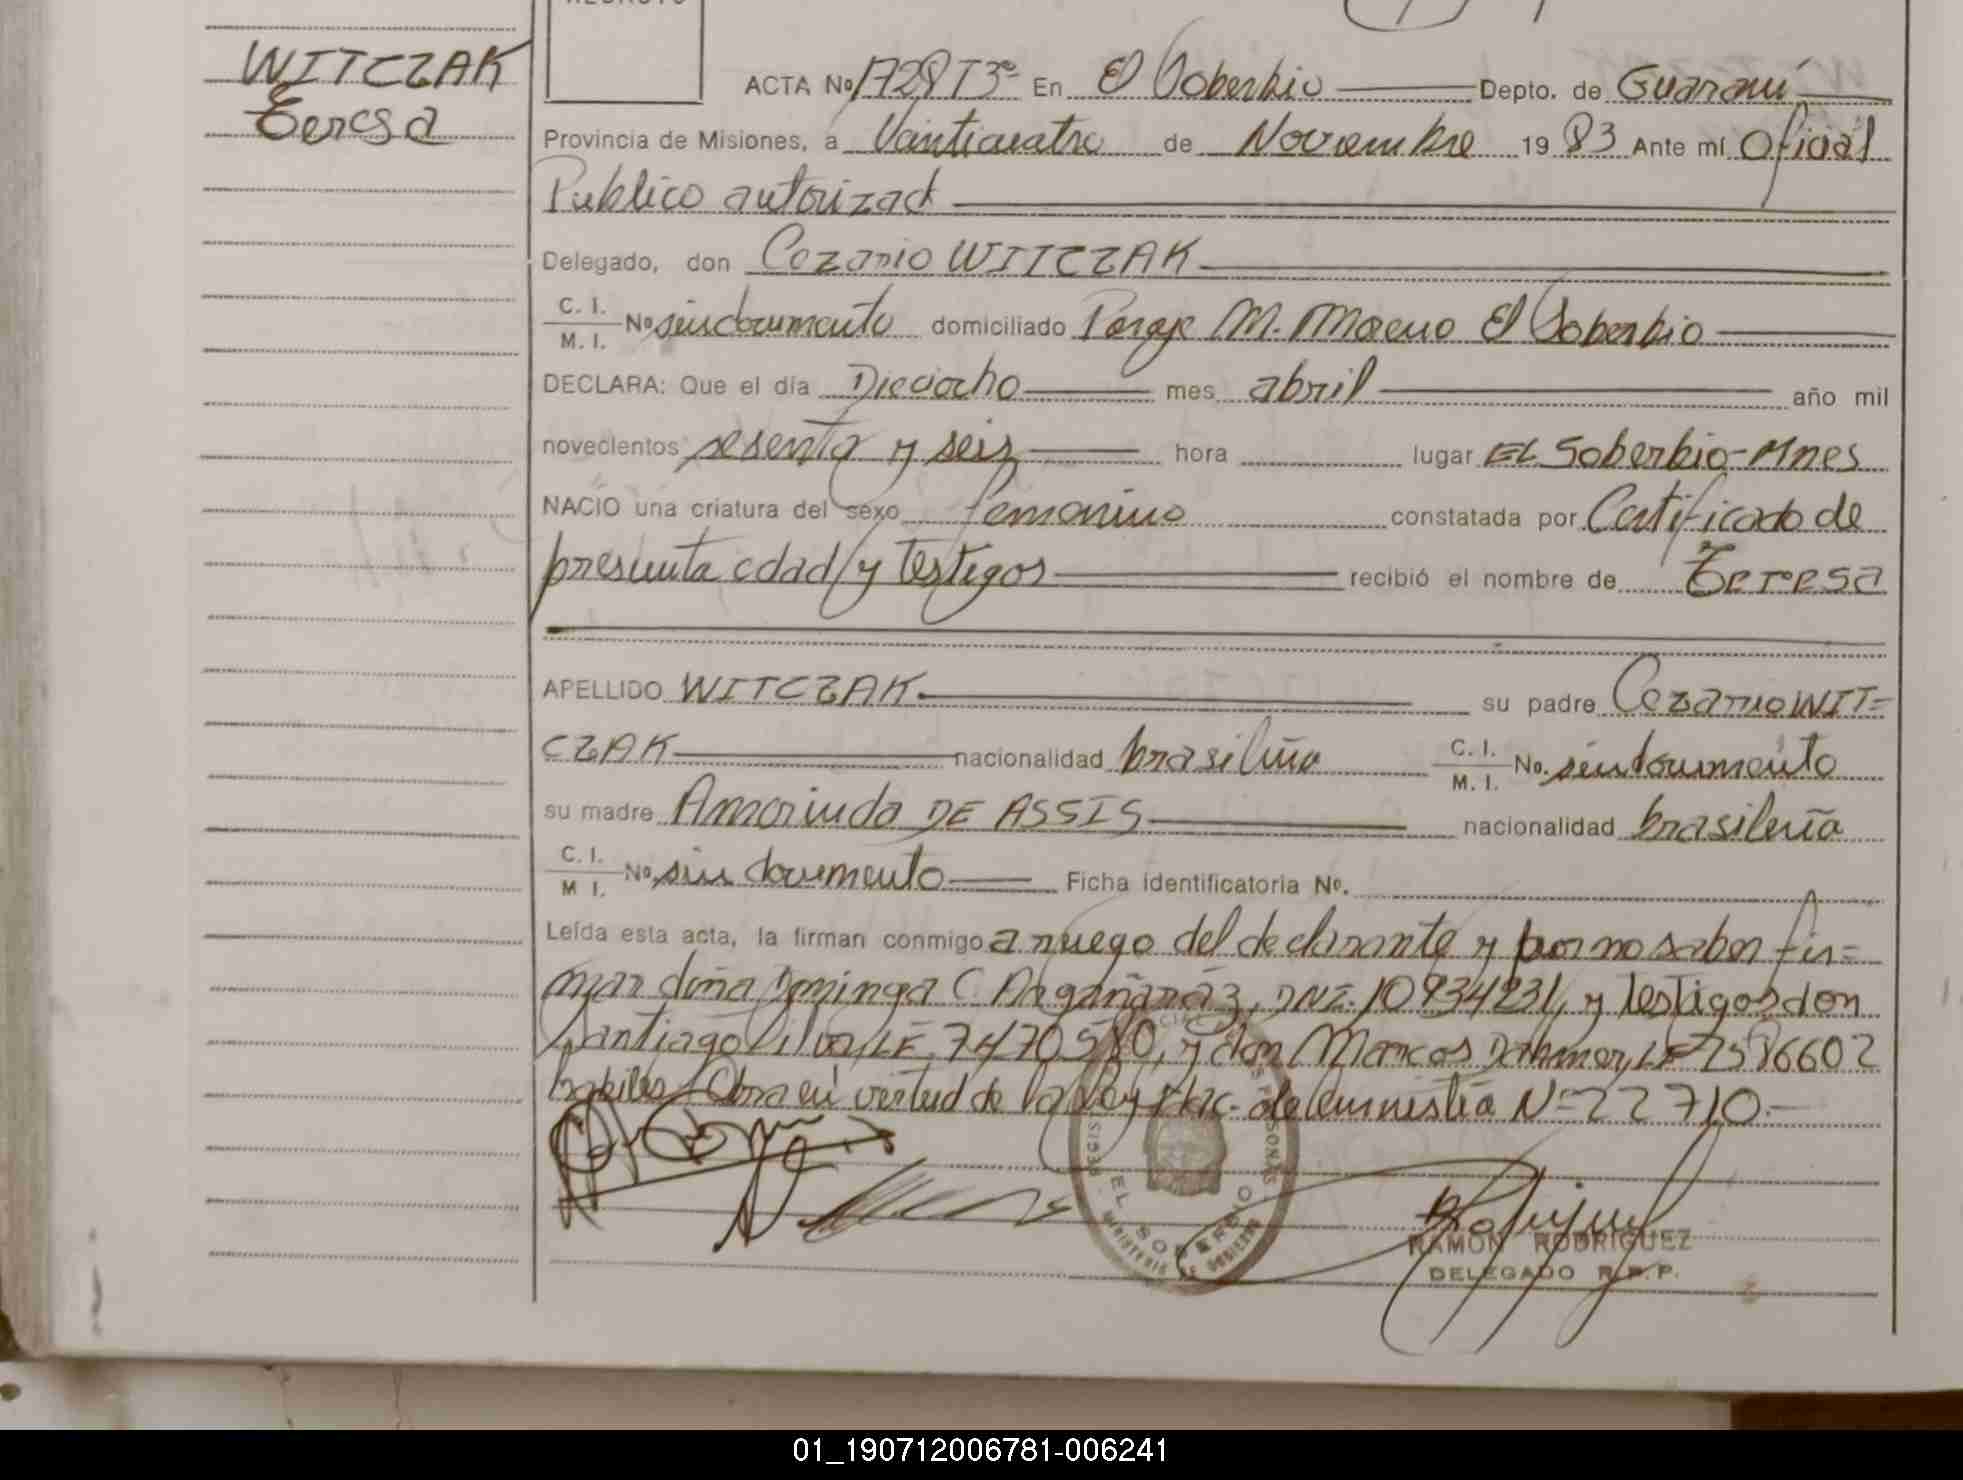 WITCZAK
Teresa
ACTA No 1728 T3º En El Soberbio Depto. de Guaraní
Provincia de Misiones, a Vainticuatro de Noviembre 1983 Ante mí Oficial
Publico autorizad
Delegado, don Cezario WITCZAK
C. I.
M. I. No sin documento domiciliado Paraje M. Moreno El Soberbio
DECLARA: Que el día Dieciocho mes abril año mil
novecientos sesenta y seis hora lugar EL Soberbio-Mnes
NACIO una criatura del sexo femenino constatada por Certificado de
presunta edad y testigos recibió el nombre de Teresa
APELLIDO WITCZAK su padre Cezario WIT=
CZAK nacionalidad brasileño C. I. M. I. No. sin documento
su madre Amorinda DE ASSIS nacionalidad brasileña
C. I.
M I. No sin documento Ficha identificatoria Nº.
Leída esta acta, la firman conmigo a ruego del declarante y por no saber fir=
mar doña Dominga C. Argañaráz, DNI. 10934231, y testigos don
Santiago Silva LE. 7470580, y don Marcos Dahmer, LE 7586602
habiles/ Obra en virtud de la Ley Nac. de amnistia Nº 22710.-
EL SOBERBIO
MINISTERIO DE GOBIERNO
RAMON RODRIGUEZ
DELEGADO R.P.P.
01_190712006781-006241